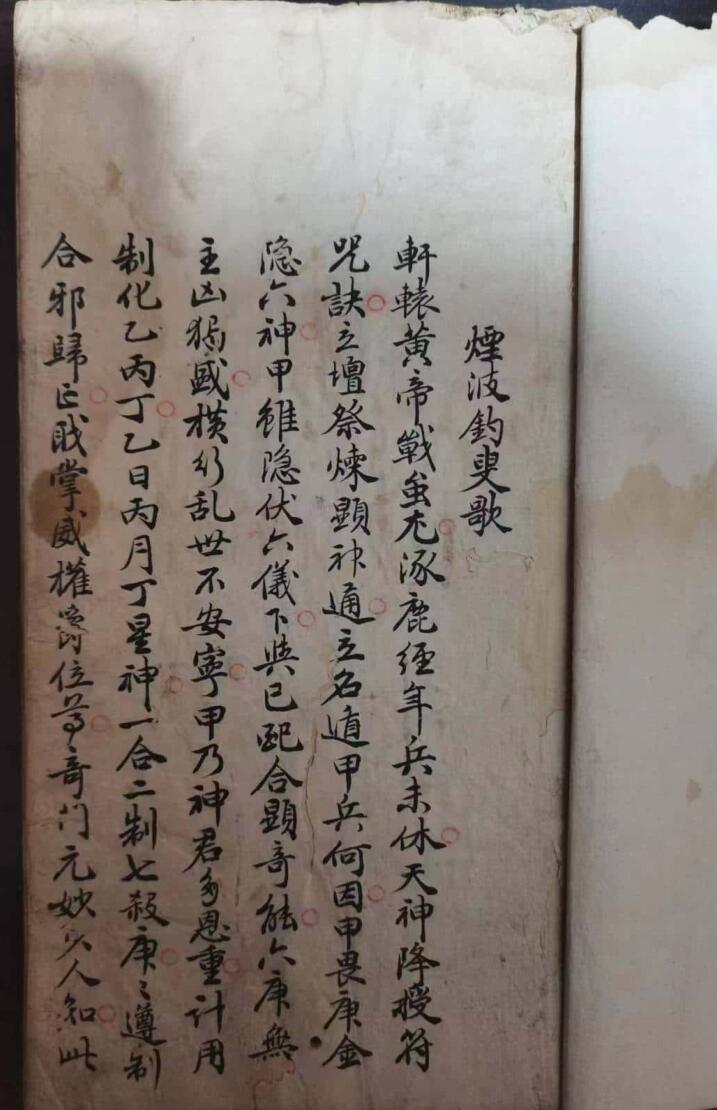 煙波釣叟歌
軒轅黄帝戰蚩尤涿鹿經年兵未休天神降授符
咒訣立壇祭煉顯神通立名遁甲兵何因甲畏庚金
隐六神甲雖隐伏六儀下與己配合顯奇能六庚無
主凶猖盛横行乱世不安寧甲乃神君多恩重计用
制化乙丙丁乙日丙月丁星神一合二制七殺庚〻遵制
合邪歸正戝掌威權爵位尊奇门元妙少人知此